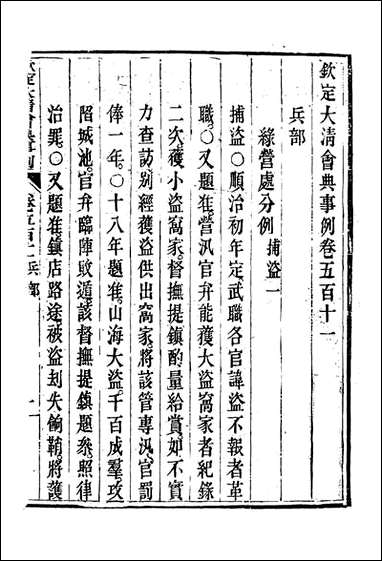 欽定大清會典事例卷五百十一
兵部
綠營處分例 捕盜一
捕盜○順治初年定武職各官諱盜不報者革
職○又題准營汛官弁能獲大盜窩家者紀錄
二次獲小盜窩家督撫提鎮酌量給賞如不實
力查訪別經獲盜供出窩家將該管專汛官罰
俸一年○十八年題准山海大盜千百成羣攻
陷城池官弁臨陣敗遁該督撫提鎮題參照律
治罪○又題准鎮店路途被盜刦失餉鞘將護
欽定大清會典事例 卷五百十一 兵部 一